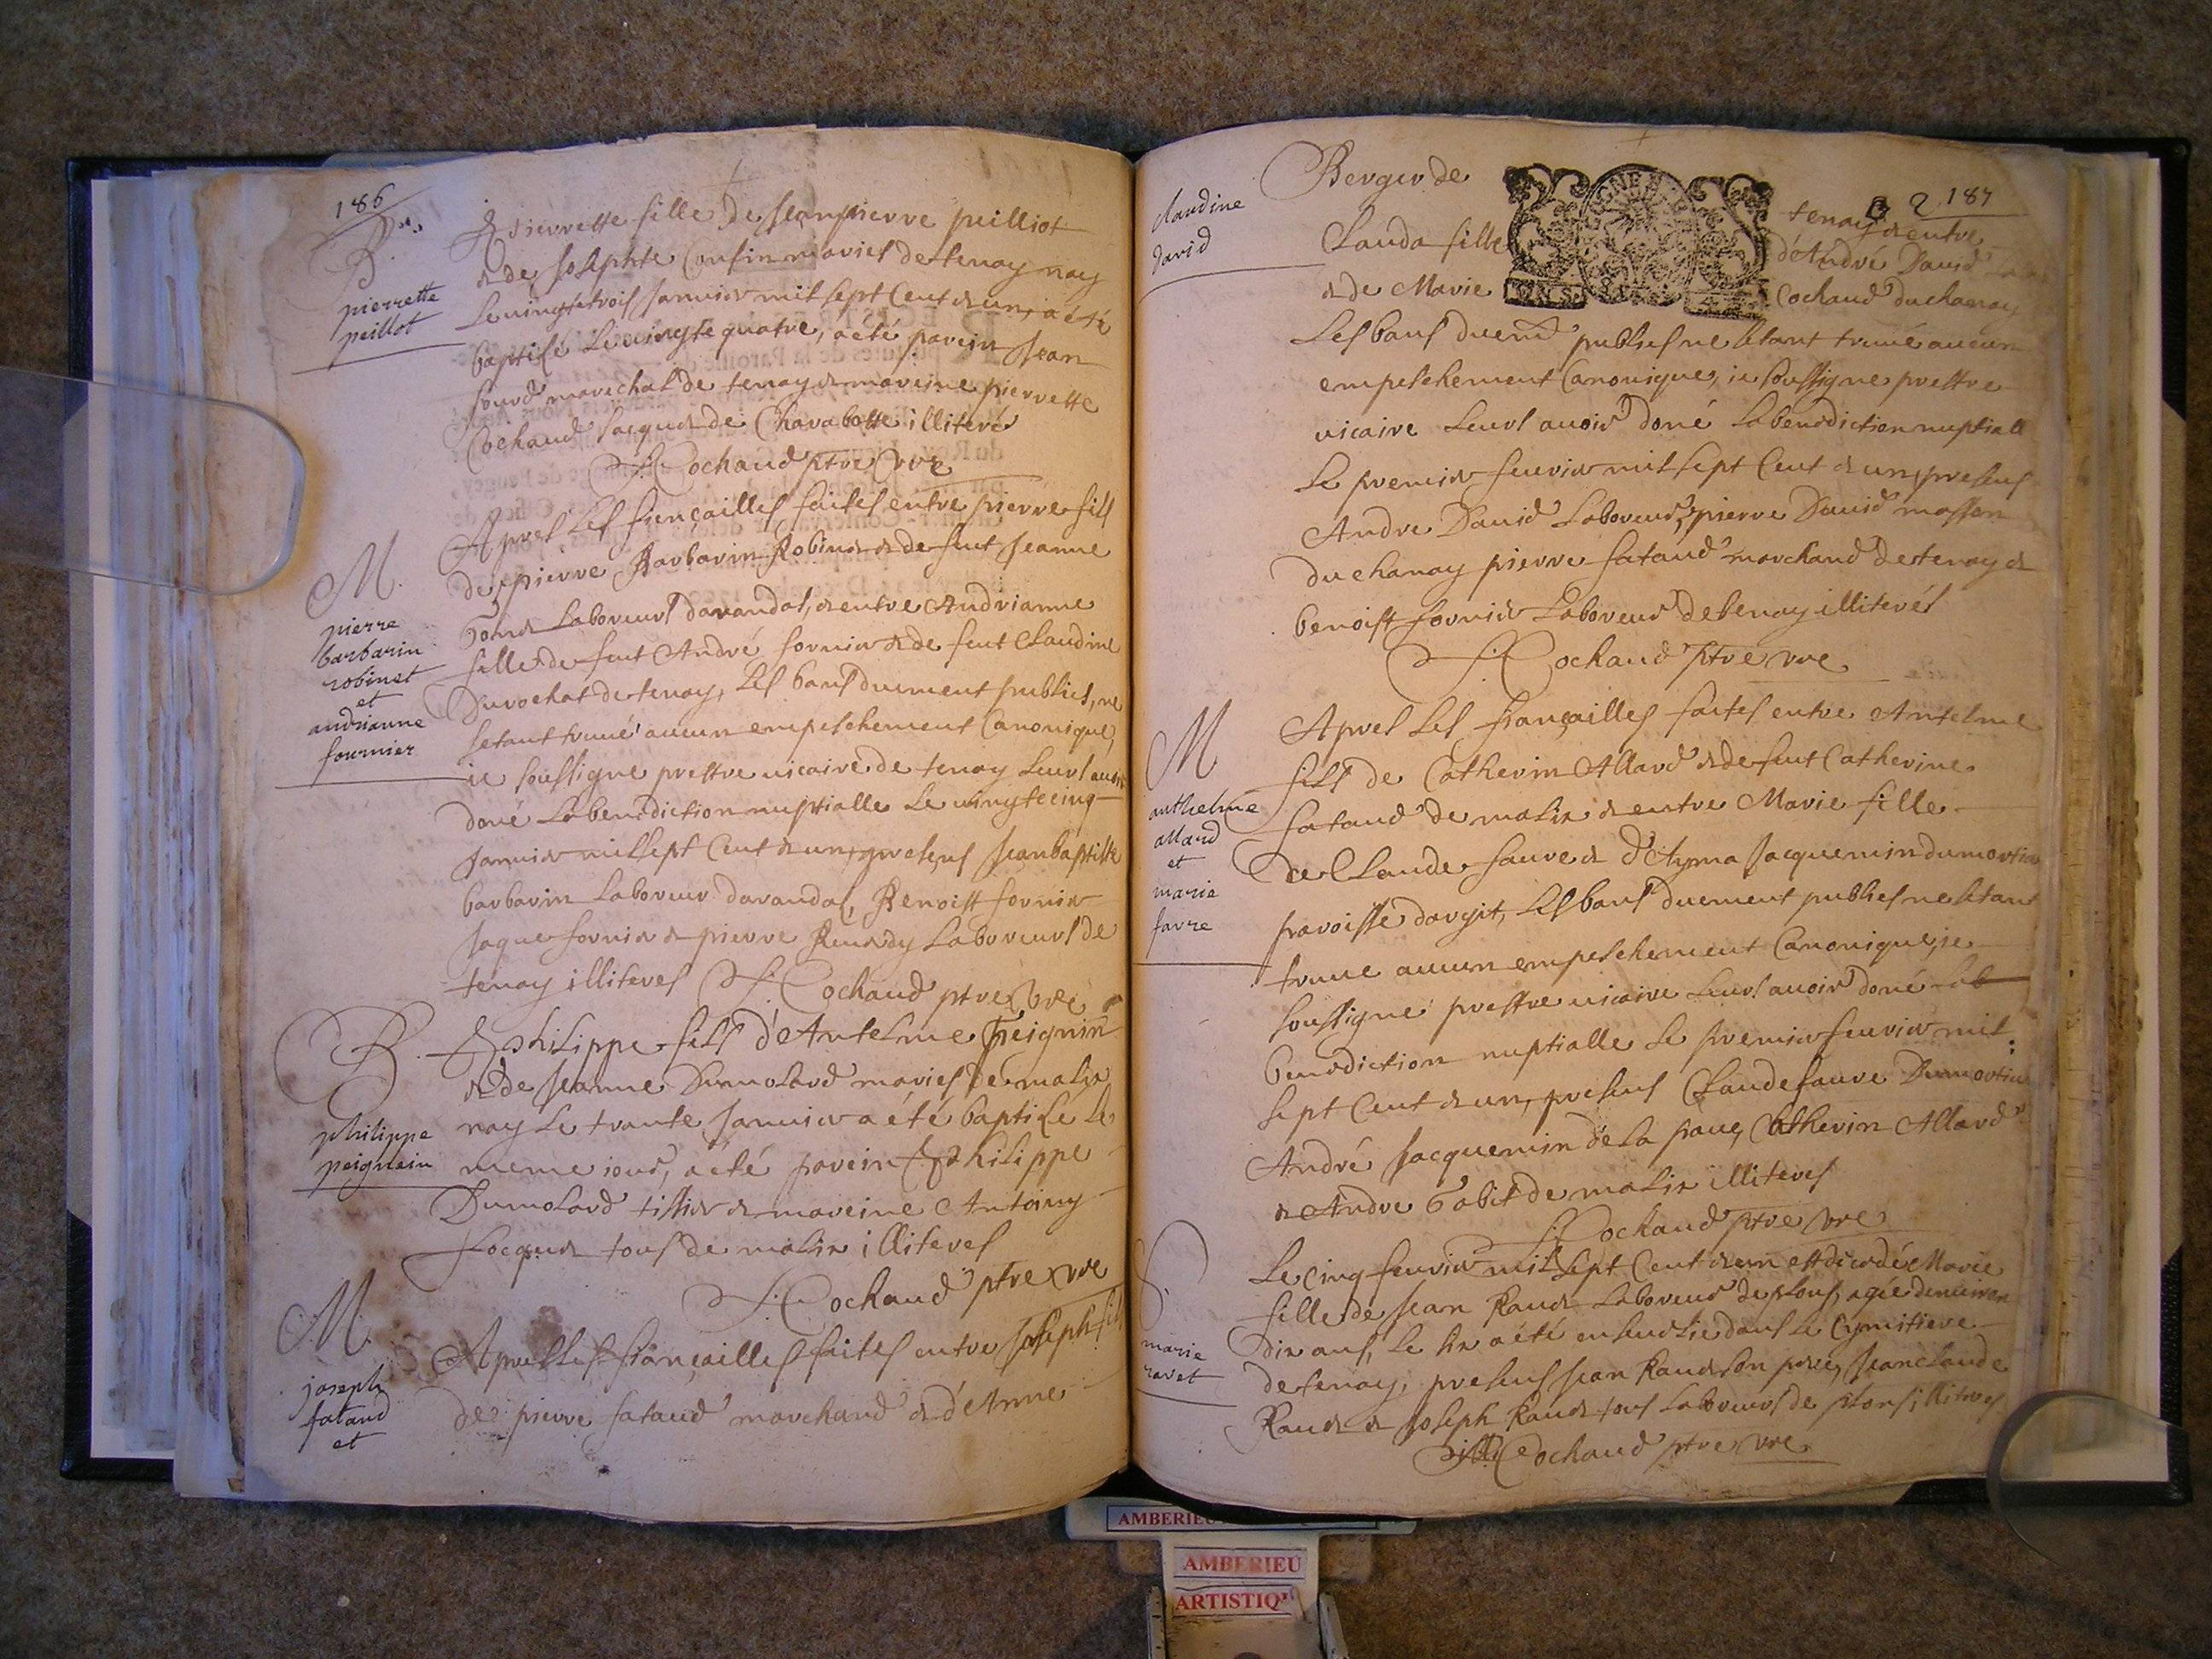 186
B.
pierrette
peillot
Pierrette fille de Jeanpierre peilliot
& de Josephte Confin mariés de tenay nay
Le uingtetrois Januier mil sept Cent & un, a été
baptisé Le uingte quatre, a eté parein Jean
marechal de tenay & mareine pierrette
Cochaud Jaquet de Charabotte illiteré
J: Cochaud ptre vre
M.
pierre
barbarin
robinet
et
andrianne
fournier
Apres Les fiençailles faites entre pierre fils
de pierre Barbarin Robinet & de feut Jeanne
Laboreurs darandas, & entre Andrianne
fille de feut André fornier & de feut Claudine
Durochat de tenay, Les bans duement publiés, ne
setant truué aucun empeschement Canonique,
ie soussigne prestre uicaire de tenay Leurs auoir
doné La benediction nuptialle Le uingtecinq
Januier mil sept Cent & un, presens Jean baptiste
barbarin Laboreur darandas, Benoist fornier
Jaque fornier & pierre Laboreurs de
tenay illiteres J: Cochaud ptre vre
B.
philippe
peignein
Philippe fils d'Antelme Peignin
& de Jeanne Dumolard mariés de malix
nay Le trante Januier a été baptisé Le
meme iour, a eté parein Philippe
Dumolard tissier & mareine Antoiny
Jocquet tous de malix illiteres
J: Cochaud ptre vre
M.
joseph
fataud
et
Apres Les fiançailles faites entre Joseph fils
de pierre fataud marchand & d'Anne
187
2
claudine
david
Berger de tenay & entre
Clauda fille d'André Dauid
& de Marie Cochaud du chanay
Les bans duemt publiés ne setant truué aucun
empeschement Canonique, ie soussigne prestre
uicaire Leurs auoir doné La benediction nuptiall
Le premier feurier mil sept Cent & un, presens
Andre Dauid Laboreur, pierre Dauid masson
du chanay pierre fataud marchand de tenay &
benoist fornier Laboreur de tenay illiterés
J: Cochaud ptre vre
M
anthelme
allard
et
marie
favre
Apres Les fiançailles faites entre Antelme
fils de Catherin Allard & de feut Catherine
fataud de malix & entre Marie fille
de Claude faure & d'Ayma Jacquemin du mortier
paroisse dargit, Les bans duement publies ne setant
truue aucun empeschement Canonique, ie
soussigne prestre uicaire Leurs auoir doné La
benediction nuptialle Le premier feurier mil
sept Cent & un, presens Claude faure Dumortier
André Jacquemin de La paue, Catherin Allard
& Andre Gabet de malix illiteres
J: Cochaud ptre vre
S.
marie
ravet
Le cinq feurier mil sept Cent & un est decedée Marie
fille de Jean Rauet Laboreur de plons, agée denuiron
dix ans, Le six a été enseuelie dans Le Cymitiere
de tenay, presens Jean Rauet son pere, Jeanclaude
Rauet & Joseph Rauet tous Laboreurs de plons, illiteres
J: Cochaud ptre vre
AMBERIEU
AMBERIEU
ARTISTIQ